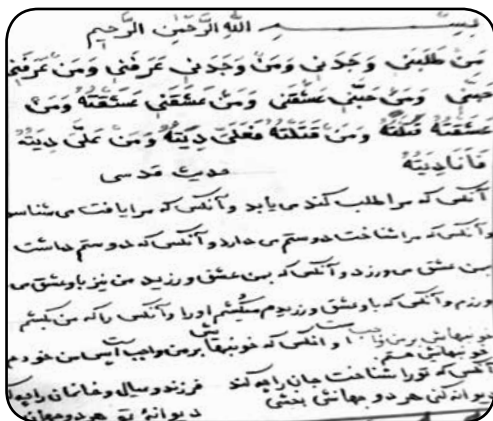 بِسْمِ اللّٰهِ الرَّحْمٰنِ الرَّحِيْمِ
مَنْ طَلَبَنِي وَجَدَنِي وَمَنْ وَجَدَنِي عَرَفَنِي وَمَنْ عَرَفَنِي
حَبَّنِي وَمَنْ حَبَّنِي عَشَقَنِي وَمَنْ عَشَقَنِي عَشَقْتُهُ وَمَنْ
عَشَقْتُهُ قَتَلْتُهُ وَمَنْ قَتَلْتُهُ فَعَلَىَّ دِيَتُهُ وَمَنْ عَلَىَّ دِيَتُهُ
فَأَنَا دِيَتُهُ
حدیث قدسی
آنکس که مرا طلب کند می یابد و آنکس که مرا یافت می شناسد
و آنکس که مرا شناخت دوستم می دارد و آنکس که دوستم داشت
بمن عشق می ورزد و آنکس که بمن عشق ورزید من نیز باو عشق می
ورزم و آنکس که باو عشق ورزیدم میکشم او را و آنکس را که من کیشم
خونبهایش برمن واجب است و آنکس که خونبهایش برمن واجب است پس من خودم
خونبهایش هستم.
آنکس که تو را شناخت جان را چه کند فرزند و عیال و خانمان را چه
دیوانه کنی هر دو جهانش بخشی دیوانهٔ تو هر دو جهان